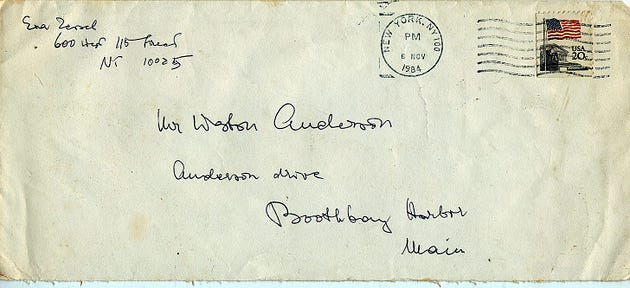 Eva Zeisel
600 West 115 Street
NY 10025
NEW YORK, NY 100
PM
6 NOV
1984
USA
20c
Mr Weston Anderson
Anderson drive
Boothbay Harbor
Main